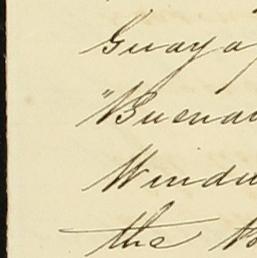 Guaya
"Buena
Windw
the